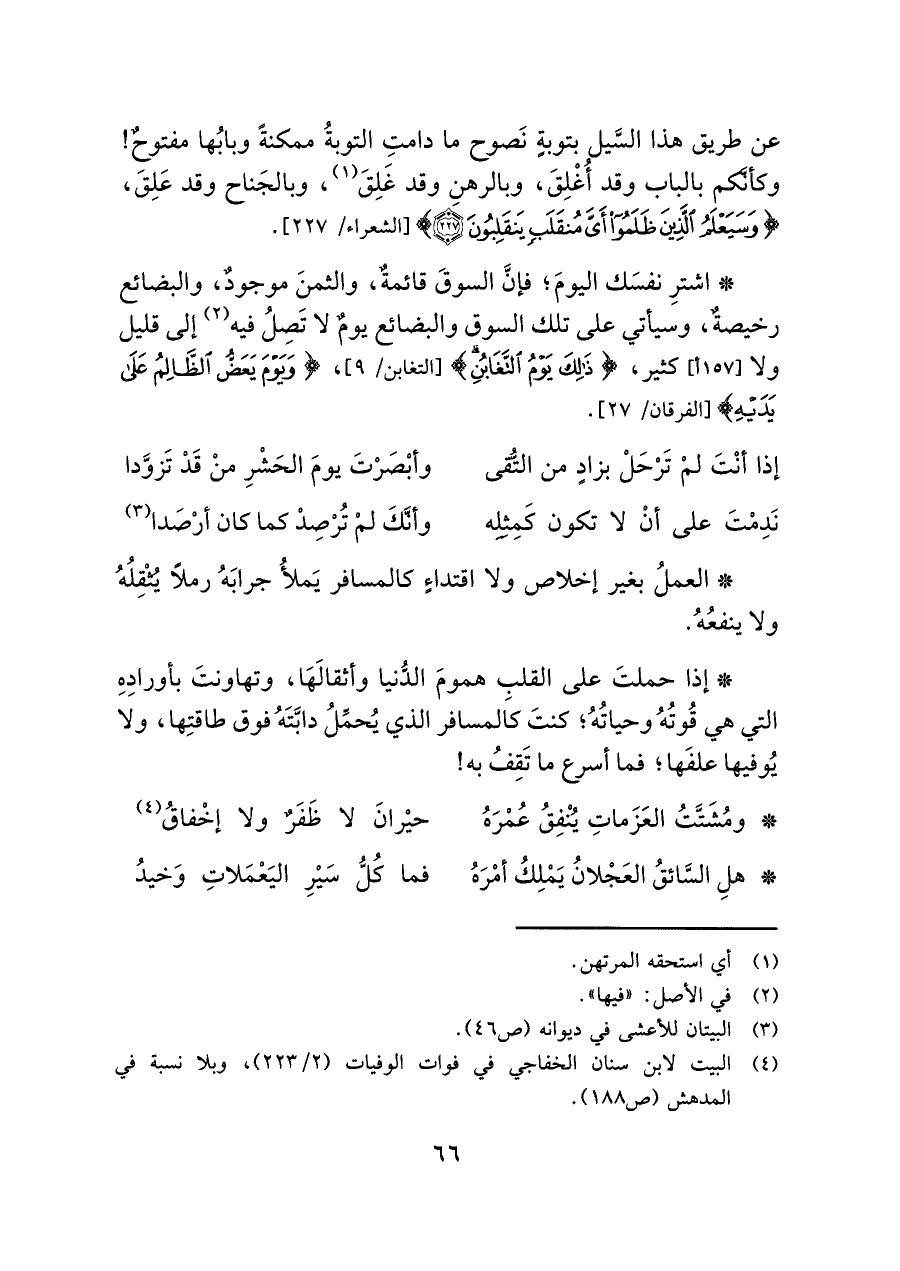 عن طريق هذا السَّيل بتوبةٍ نَصوح ما دامتِ التوبةُ ممكنةً وبابُها مفتوحٌ!
وكأنَّكم بالباب وقد أُغْلِقَ، وبالرهنِ وقد غَلِقَ(١)، وبالجَناح وقد عَلِقَ،
﴿وَسَيَعْلَمُ ٱلَّذِينَ ظَلَمُوٓا۟ أَىَّ مُنقَلَبٍ يَنقَلِبُونَ ٢٢٧﴾ [الشعراء/ ٢٢٧].
* اشترِ نفسَك اليومَ؛ فإنَّ السوقَ قائمةٌ، والثمنَ موجودٌ، والبضائع
رخيصةٌ، وسيأتي على تلك السوق والبضائع يومٌ لا تَصِلُ فيه(٢) إلى قليل
ولا [١٥٧أ] كثير، ﴿ذَٰلِكَ يَوْمُ ٱلتَّغَابُنِۗ﴾ [التغابن/ ٩]، ﴿وَيَوْمَ يَعَضُّ ٱلظَّالِمُ عَلَىٰ
يَدَيْهِ﴾ [الفرقان/ ٢٧].
إذا أنْتَ لمْ تَرْحَلْ بزادٍ من التُّقى وأبْصَرْتَ يومَ الحَشْرِ منْ قَدْ تَزوَّدا
نَدِمْتَ على أنْ لا تكون كَمِثلِهِ وأنَّكَ لمْ تُرْصِدْ كما كان أرْصَدا(٣)
* العملُ بغير إخلاص ولا اقتداءٍ كالمسافر يَملأُ جرابَهُ رملاً يُثْقِلُهُ
ولا ينفعُهُ.
* إذا حملتَ على القلبِ همومَ الدُّنيا وأثقالَهَا، وتهاونتَ بأورادِهِ
التي هي قُوتُهُ وحياتُهُ؛ كنتَ كالمسافر الذي يُحمِّلُ دابَّتَهُ فوق طاقتِها، ولا
يُوفيها علفَها؛ فما أسرع ما تَقِفُ به!
* ومُشَتَّتُ العَزَماتِ يُنْفِقُ عُمْرَهُ حيْرانَ لا ظَفَرٌ ولا إخْفاقُ(٤)
* هلِ السَّائقُ العَجْلانُ يَمْلِكُ أمْرَهُ فما كُلُّ سَيْرِ اليَعْمَلاتِ وَخيدُ
(١) أي استحقه المرتهن.
(٢) في الأصل: «فيها».
(٣) البيتان للأعشى في ديوانه (ص٤٦).
(٤) البيت لابن سنان الخفاجي في فوات الوفيات (٢/ ٢٢٣)، وبلا نسبة في
المدهش (ص١٨٨).
٦٦